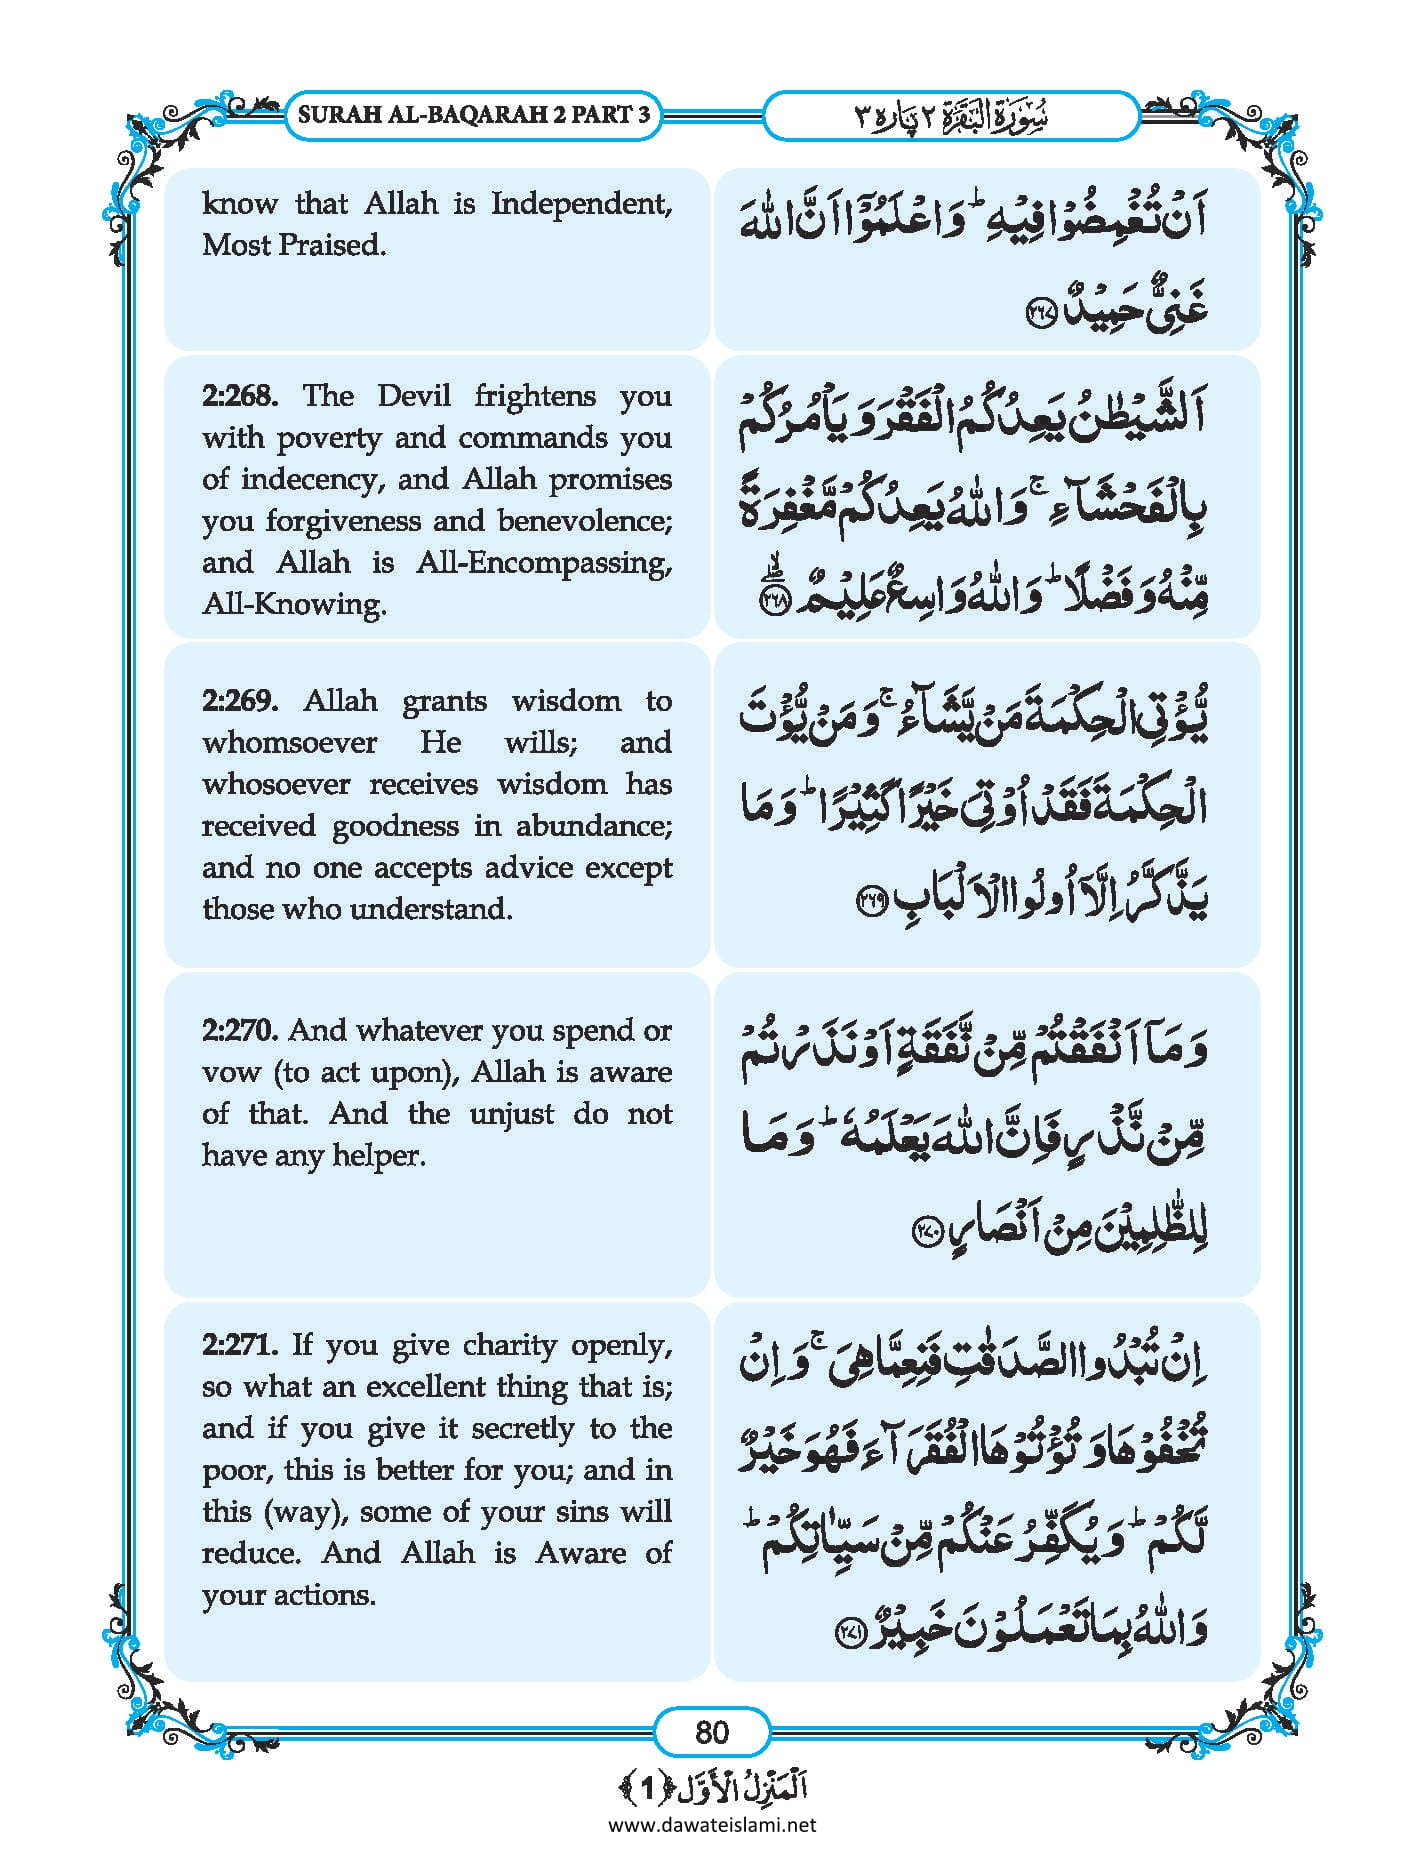 SURAH AL-BAQARAH 2 PART 3
سُوْرَۃُ الْبَقَرَۃِ ٢ پارہ ٣
know that Allah is Independent,
Most Praised.
اَنْ تُغْمِضُوْا فِیْهِ ؕ وَ اعْلَمُوْۤا اَنَّ اللّٰهَ
غَنِیٌّ حَمِیْدٌ ﴿۲۶۷﴾
2:268. The Devil frightens you
with poverty and commands you
of indecency, and Allah promises
you forgiveness and benevolence;
and Allah is All-Encompassing,
All-Knowing.
اَلشَّیْطٰنُ یَعِدُكُمُ الْفَقْرَ وَ یَاْمُرُكُمْ
بِالْفَحْشَآءِ ۚ وَ اللّٰهُ یَعِدُكُمْ مَّغْفِرَةً
مِّنْهُ وَ فَضْلًا ؕ وَ اللّٰهُ وَاسِعٌ عَلِیْمٌ ﴿۲۶۸﴾ۖۙ
2:269. Allah grants wisdom to
whomsoever He wills; and
whosoever receives wisdom has
received goodness in abundance;
and no one accepts advice except
those who understand.
یُّؤْتِی الْحِكْمَةَ مَنْ یَّشَآءُ ۚ وَ مَنْ یُّؤْتَ
الْحِكْمَةَ فَقَدْ اُوْتِیَ خَیْرًا كَثِیْرًا ؕ وَ مَا
یَذَّكَّرُ اِلَّاۤ اُولُوا الْاَلْبَابِ ﴿۲۶۹﴾
2:270. And whatever you spend or
vow (to act upon), Allah is aware
of that. And the unjust do not
have any helper.
وَ مَاۤ اَنْفَقْتُمْ مِّنْ نَّفَقَةٍ اَوْ نَذَرْتُمْ
مِّنْ نَّذْرٍ فَاِنَّ اللّٰهَ یَعْلَمُهٗ ؕ وَ مَا
لِلظّٰلِمِیْنَ مِنْ اَنْصَارٍ ﴿۲۷۰﴾
2:271. If you give charity openly,
so what an excellent thing that is;
and if you give it secretly to the
poor, this is better for you; and in
this (way), some of your sins will
reduce. And Allah is Aware of
your actions.
اِنْ تُبْدُوا الصَّدَقٰتِ فَنِعِمَّا هِیَ ۚ وَ اِنْ
تُخْفُوْهَا وَ تُؤْتُوْهَا الْفُقَرَآءَ فَهُوَ خَیْرٌ
لَّكُمْ ؕ وَ یُكَفِّرُ عَنْكُمْ مِّنْ سَیِّاٰتِكُمْ ؕ
وَ اللّٰهُ بِمَا تَعْمَلُوْنَ خَبِیْرٌ ﴿۲۷۱﴾
80
اَلْمَنْزِلُ الْاَوَّل ﴿1﴾
www.dawateislami.net